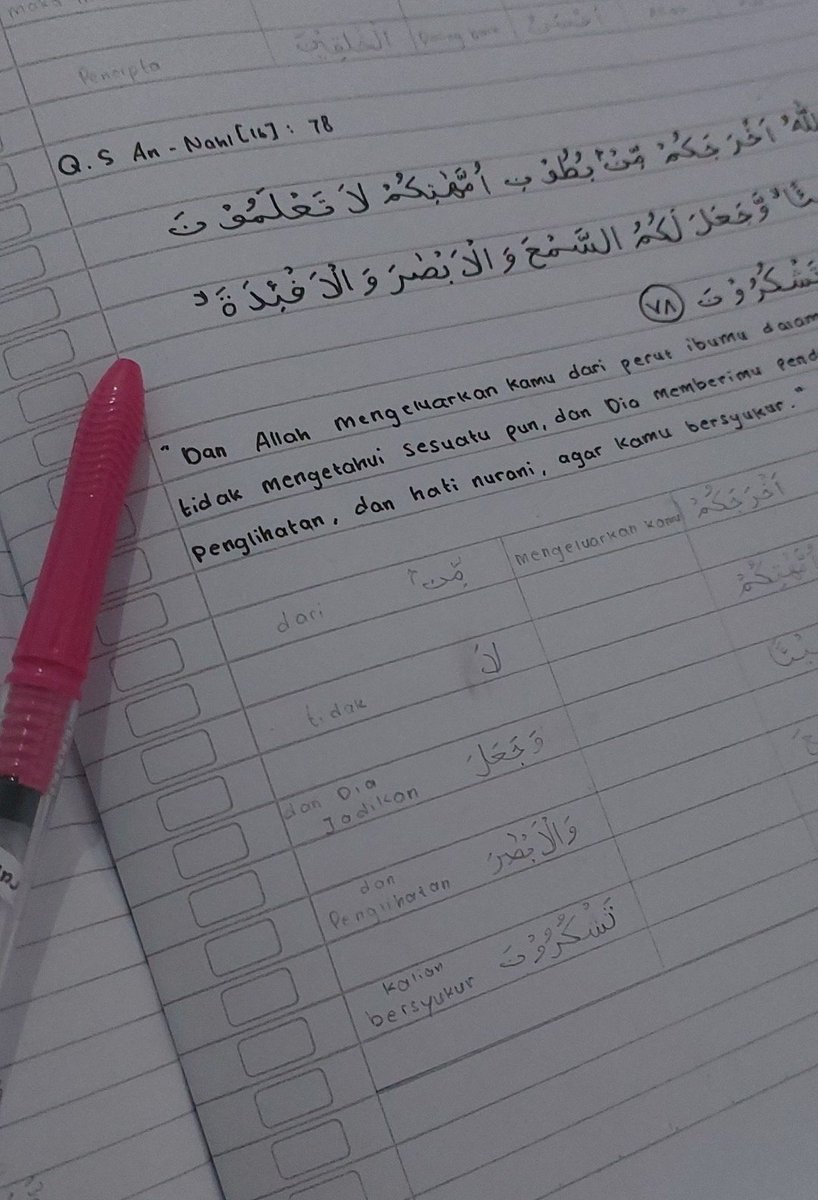 Pencipta
Q.S An-Nahl [16] : 78
اَخْرَجَكُمْ مِّنْۢ بُطُوْنِ اُمَّهٰتِكُمْ لَا تَعْلَمُوْنَ
وَّجَعَلَ لَكُمُ السَّمْعَ وَالْاَبْصٰرَ وَالْاَفْـِٕدَةَ ۙ
تَشْكُرُوْنَ ٧٨
"Dan Allah mengeluarkan kamu dari perut ibumu dalam
tidak mengetahui sesuatu pun, dan Dia memberimu
penglihatan, dan hati nurani, agar kamu bersyukur."
اَخْرَجَكُمْ mengeluarkan kamu مِّنْۢ dari
لَا tidak
وَجَعَلَ dan Dia
Jadikan
وَالْاَبْصٰرَ dan
Penglihatan
تَشْكُرُوْنَ kalian
bersyukur